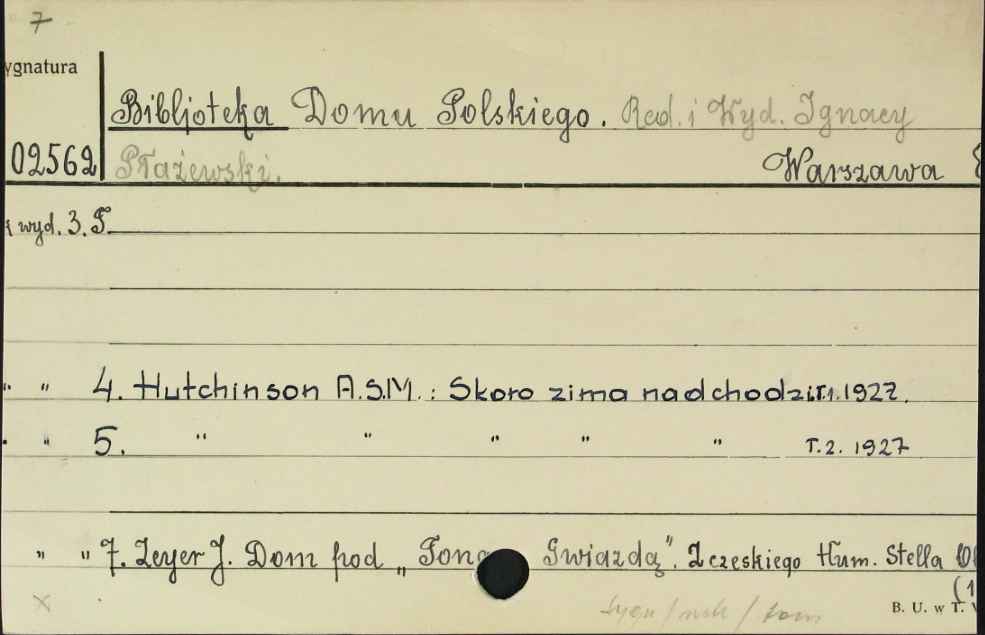 7
ygnatura
Bibljoteka Domu Polskiego. Red. i Wyd. Ignacy
02562 Płażewski. Warszawa
wyd. 3. T.
" " 4. Hutchinson A.S.M. : Skoro zima nadchodzi T.1. 1927.
" " 5. " " " " " T.2. 1927
" " 7. Zeyer J. Dom pod „Ton Gwiazdą". Z czeskiego tłum. Stella
(1
x sygn / nak / tom B. U. w T.